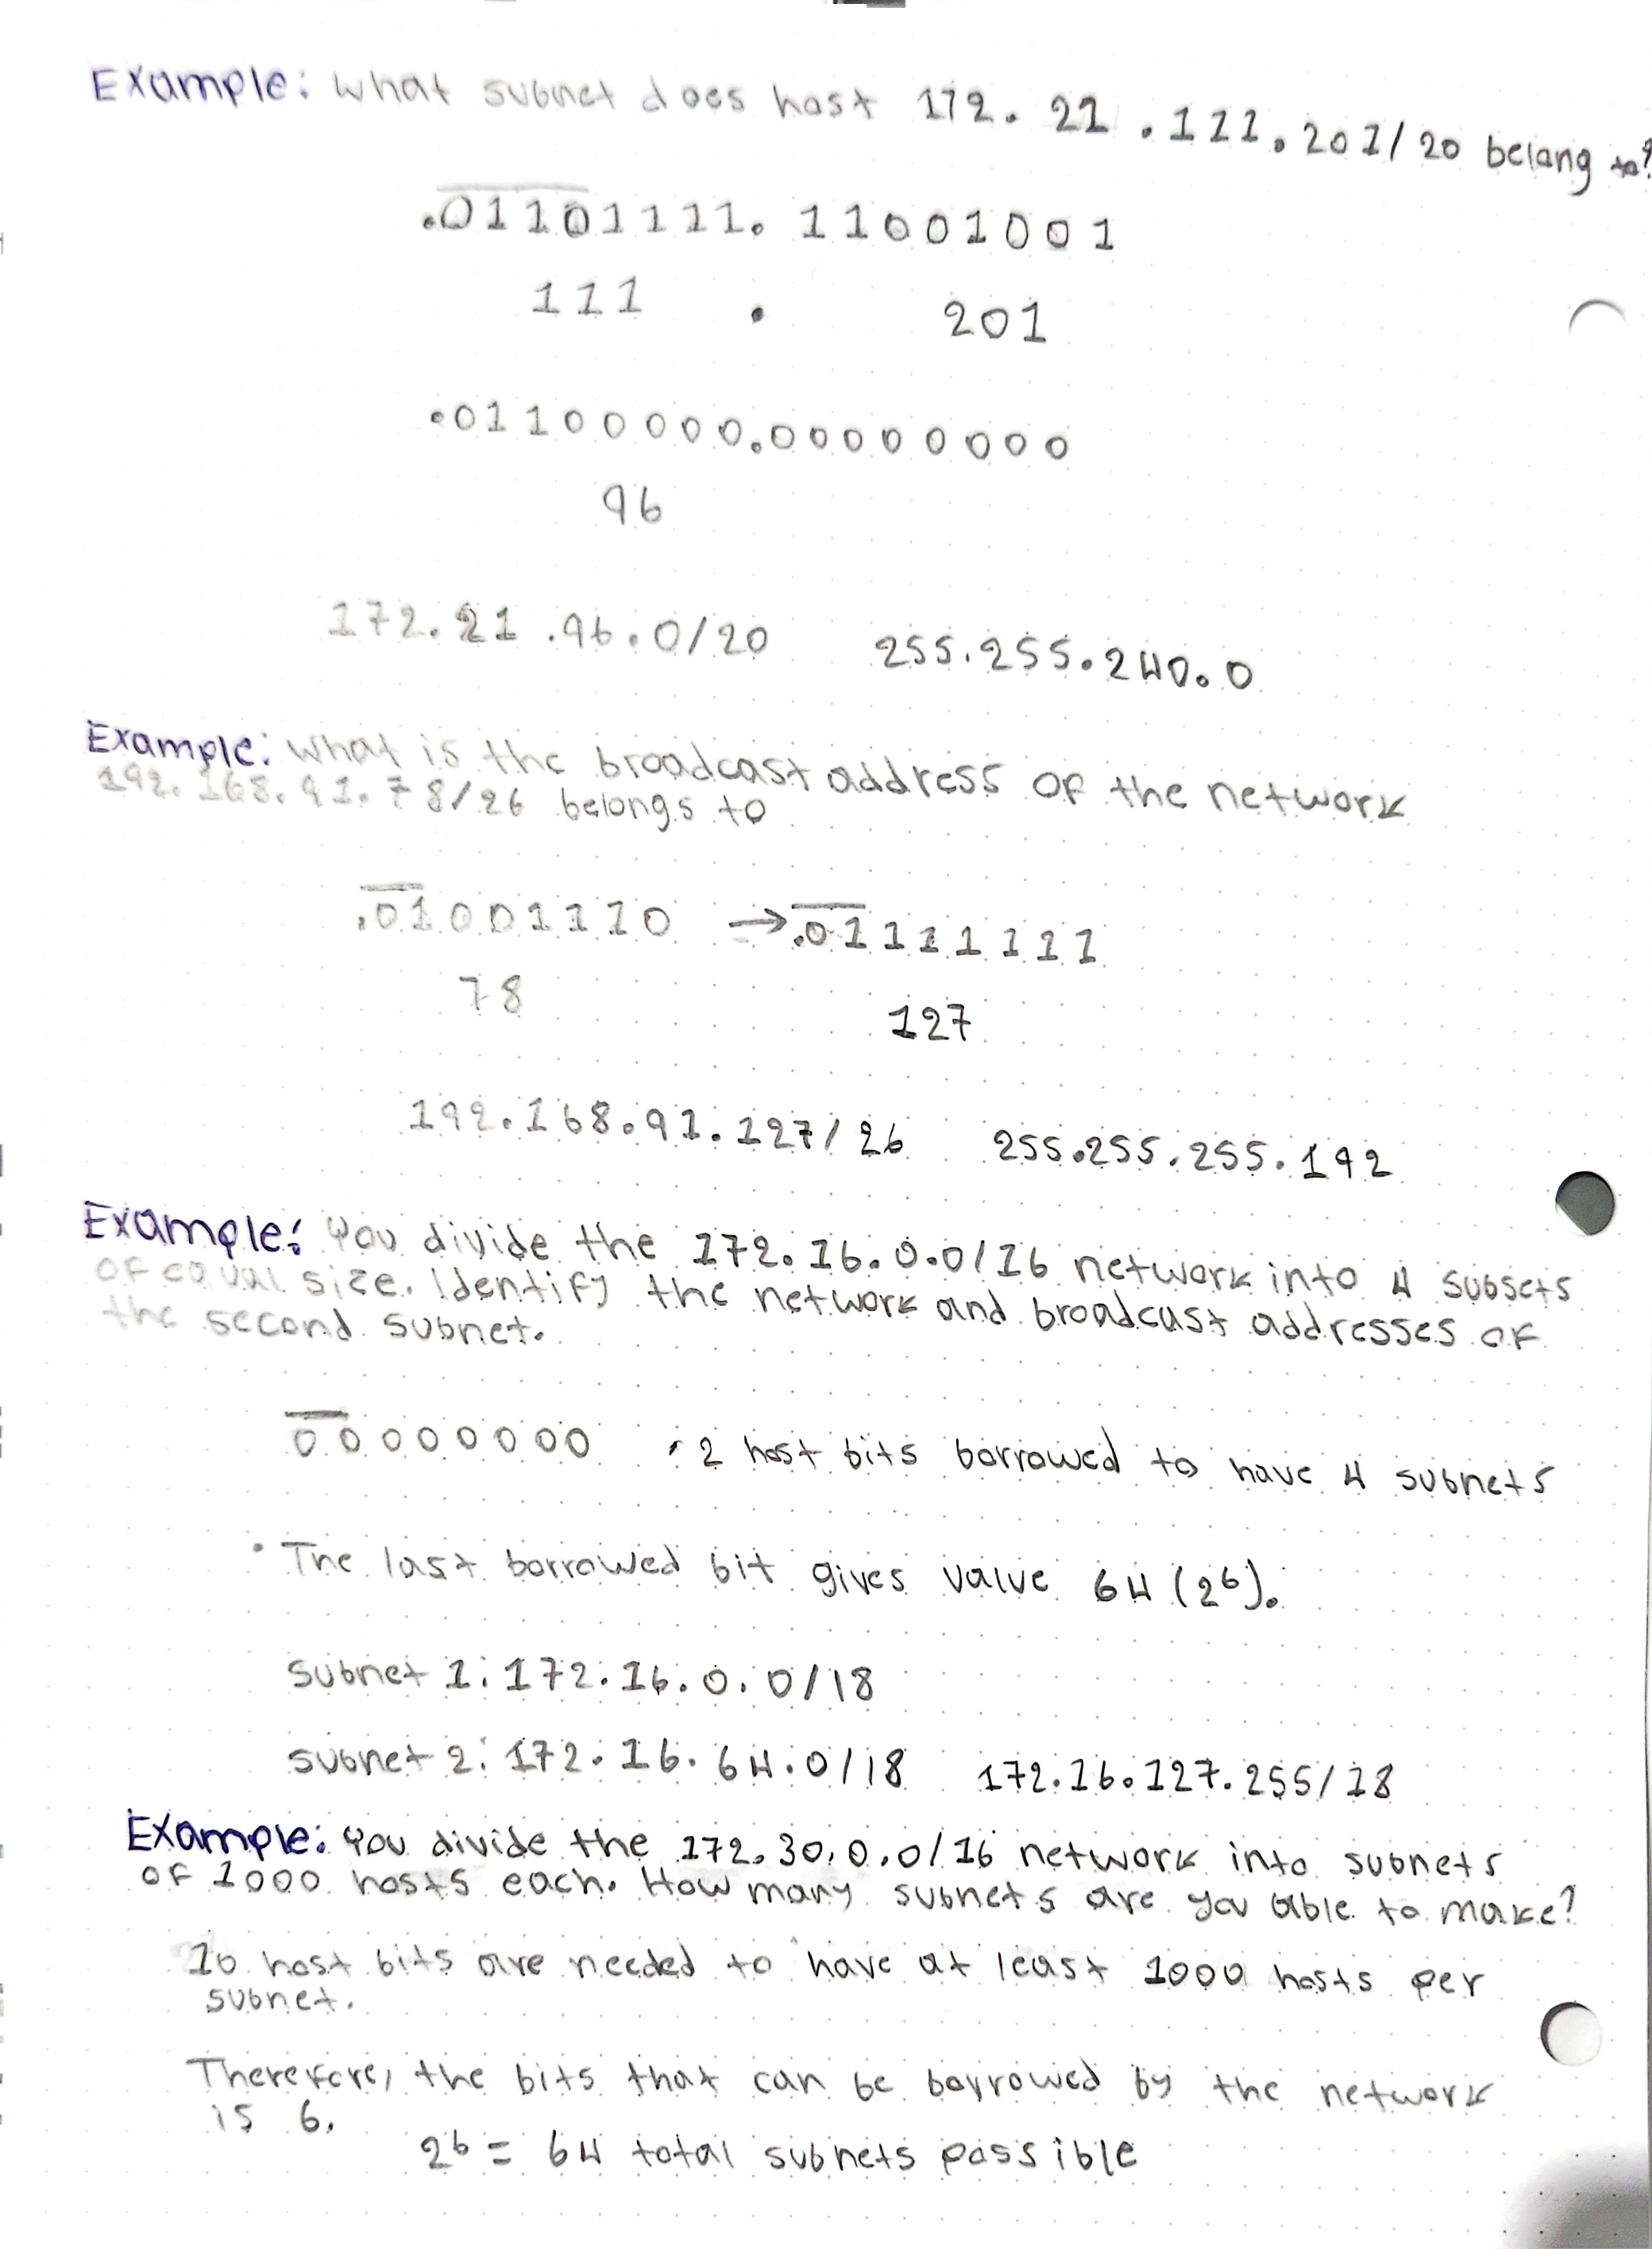 Example: What subnet does host 172.21.111.201/20 belong to?
.01101111.11001001
111 . 201
.01100000.00000000
96
172.21.96.0/20 255.255.240.0
Example: What is the broadcast address of the network
192.168.91.78/26 belongs to
.01001110 → .01111111
78
127
192.168.91.127/26 255.255.255.192
Example: You divide the 172.16.0.0/16 network into 4 subsets
of equal size. Identify the network and broadcast addresses of
the second subnet.
00000000 • 2 host bits borrowed to have 4 subnets
• The last borrowed bit gives value 64 (2⁶).
subnet 1: 172.16.0.0/18
subnet 2: 172.16.64.0/18 172.16.127.255/18
Example: You divide the 172.30.0.0/16 network into subnets
of 1000 hosts each. How many subnets are you able to make?
10 host bits are needed to have at least 1000 hosts per
subnet.
Therefore, the bits that can be borrowed by the network
is 6.
2⁶ = 64 total subnets possible